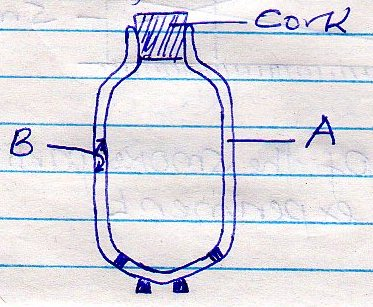 Cork
B
A